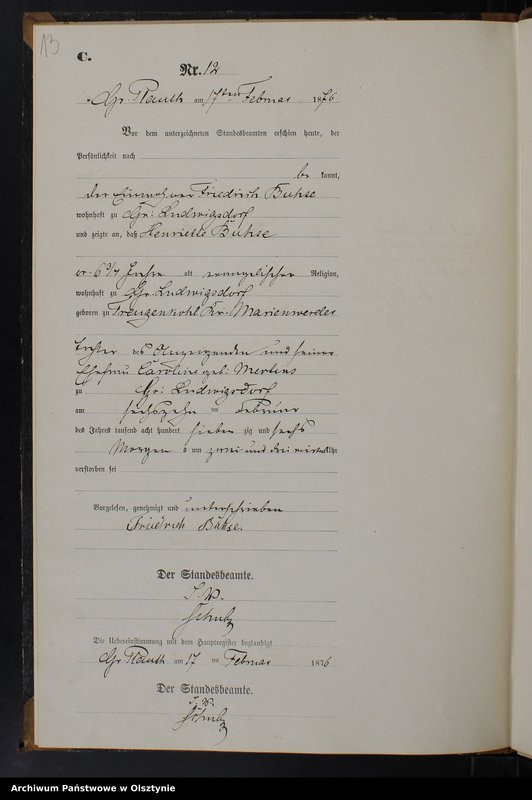 13
C.
Nr. 12
Gr. Plauth am 17ten Februar 1876
Vor dem unterzeichneten Standesbeamten erschien heute, der
Persönlichkeit nach
be kannt,
der Einwohner Friedrich Buhse
wohnhaft zu Gr: Ludwigsdorf
und zeigte an, daß Henriette Buhse
6 3/4 Jahre alt evangelischer Religion,
wohnhaft zu Gr. Ludwigsdorf
geboren zu Kr. Marienwerder
Tochter des Anzeigenden und seiner
Ehefrau Caroline geb: Mertins
zu Gr: Ludwigsdorf
am sechszehn ten Februar
des Jahres tausend acht hundert sieben zig und sechs
Morgen s um zwei und drei viertel Uhr
verstorben sei
Vorgelesen, genehmigt und unterschrieben
Friedrich Buhse.
Der Standesbeamte.
I. V.
Schulz
Die Uebereinstimmung mit dem Hauptregister beglaubigt
Gr. Plauth am 17 ten Februar 1876
Der Standesbeamte.
I. V.
Schulz
Archiwum Państwowe w Olsztynie